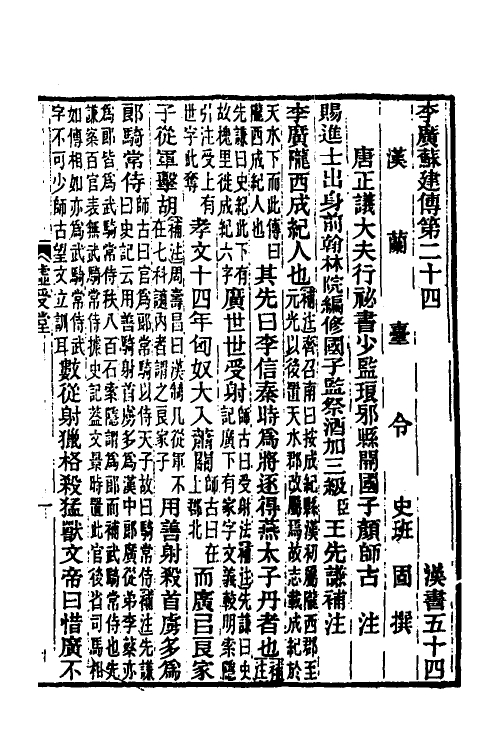 李廣蘇建傳第二十四　漢書五十四
漢蘭臺令史班固撰
唐正議大夫行祕書少監琅邪縣開國子顏師古注
賜進士出身前翰林院編修國子監祭酒加三級臣王先謙補注
李廣隴西成紀人也補注齊召南曰按成紀縣漢初屬隴西郡至元光以後置天水郡改屬焉故志載成紀於
天水下而此傳曰隴西成紀人也其先曰李信秦時為將逐得燕太子丹者也補注
先謙曰史紀此下有故槐里徙成紀六字廣世世受射師古曰受射法補注先謙曰史記廣下有家字文義較明索隱
引注受上有世字此奪孝文十四年匈奴大入蕭關師古曰在上郡北而廣㠯良家
子從軍擊胡補注周壽昌曰漢制凡從軍不在七科讁內者謂之良家子用善射殺首虜多為
郎騎常侍師古曰官為郎常騎以侍天子故曰騎常侍補注先謙曰史記云用善騎射殺首虜多為漢中郎廣從弟李蔡亦
為郎皆為武騎常侍秩八百石案隱謂為郎而補武騎常侍也先謙案百官表無武騎常侍據史記蓋文景時置此官後省司馬相
如傳相如亦為武騎常侍武字不可少師古望文立訓耳數從射獵格殺猛獸文帝曰惜廣不
虛受堂